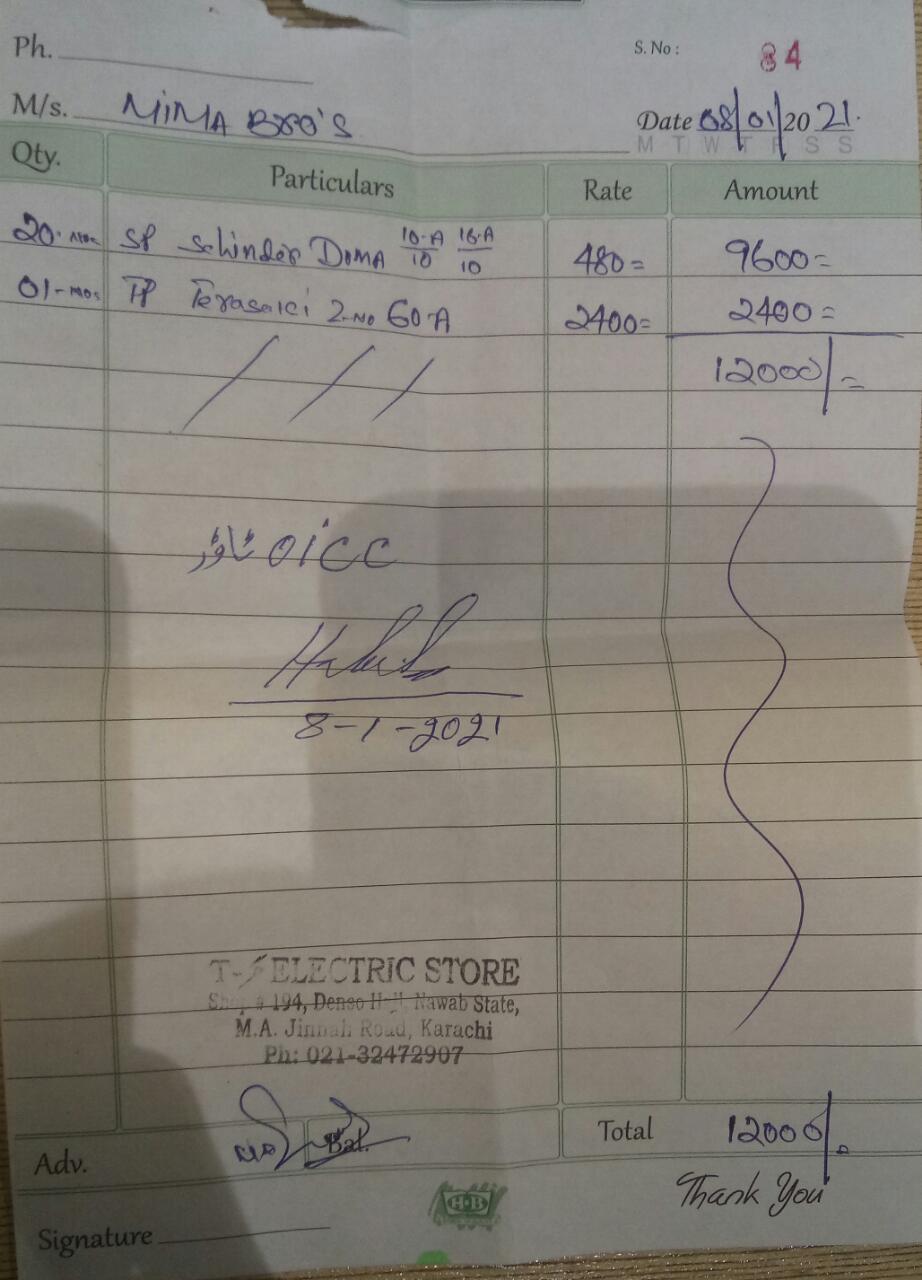 Ph.
S. No : 84
M/s. MIMA BRO'S
Date 08/01/2021.
M T W T F S S
Qty. Particulars Rate Amount
20. SP DOMA 10-A/10 16-A/10 480= 9600=
01- TP Terasaki 2-No 60-A 2400= 2400=
12000/=
ٹاور OICC
8-1-2021
ELECTRIC STORE
194, Denso Hall, Nawab State,
M.A. Jinnah Road, Karachi
Ph: 021-32472907
Adv. Bal. Total 12000/.
Thank You
H-B
Signature